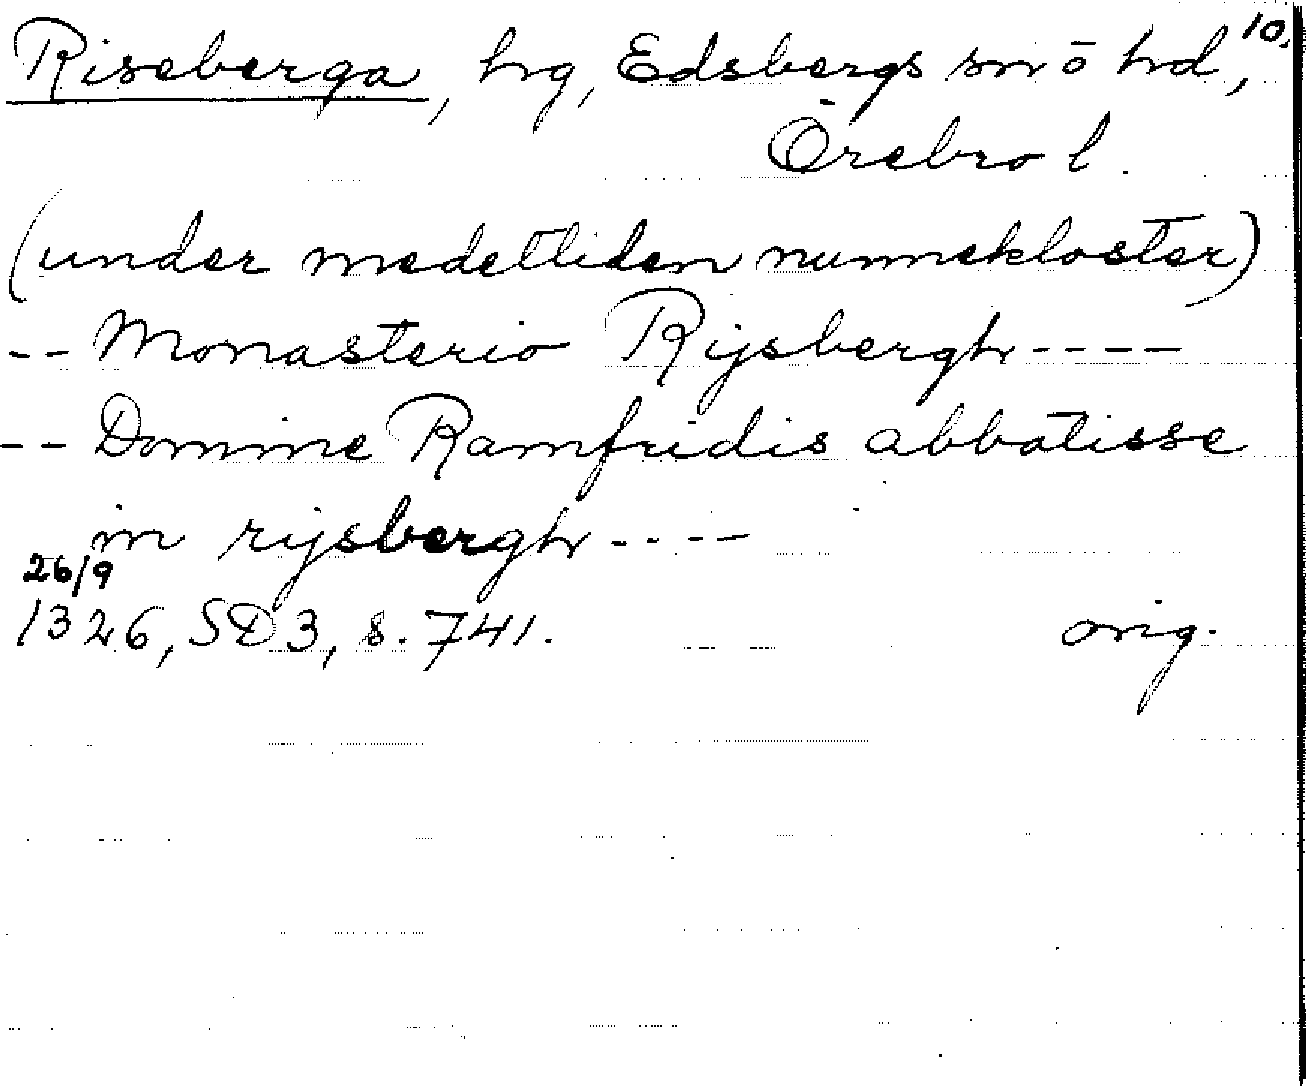 Riseberga, hrg, Edsbergs sn o hd, 10.
Örebro l.
(under medeltiden nunnekloster)
-- Monasterio Rijsbergh ----
-- Domine Ramfridis abbatisse
in rijsbergh ----
26/9
1326, SD3, s. 741. orig.